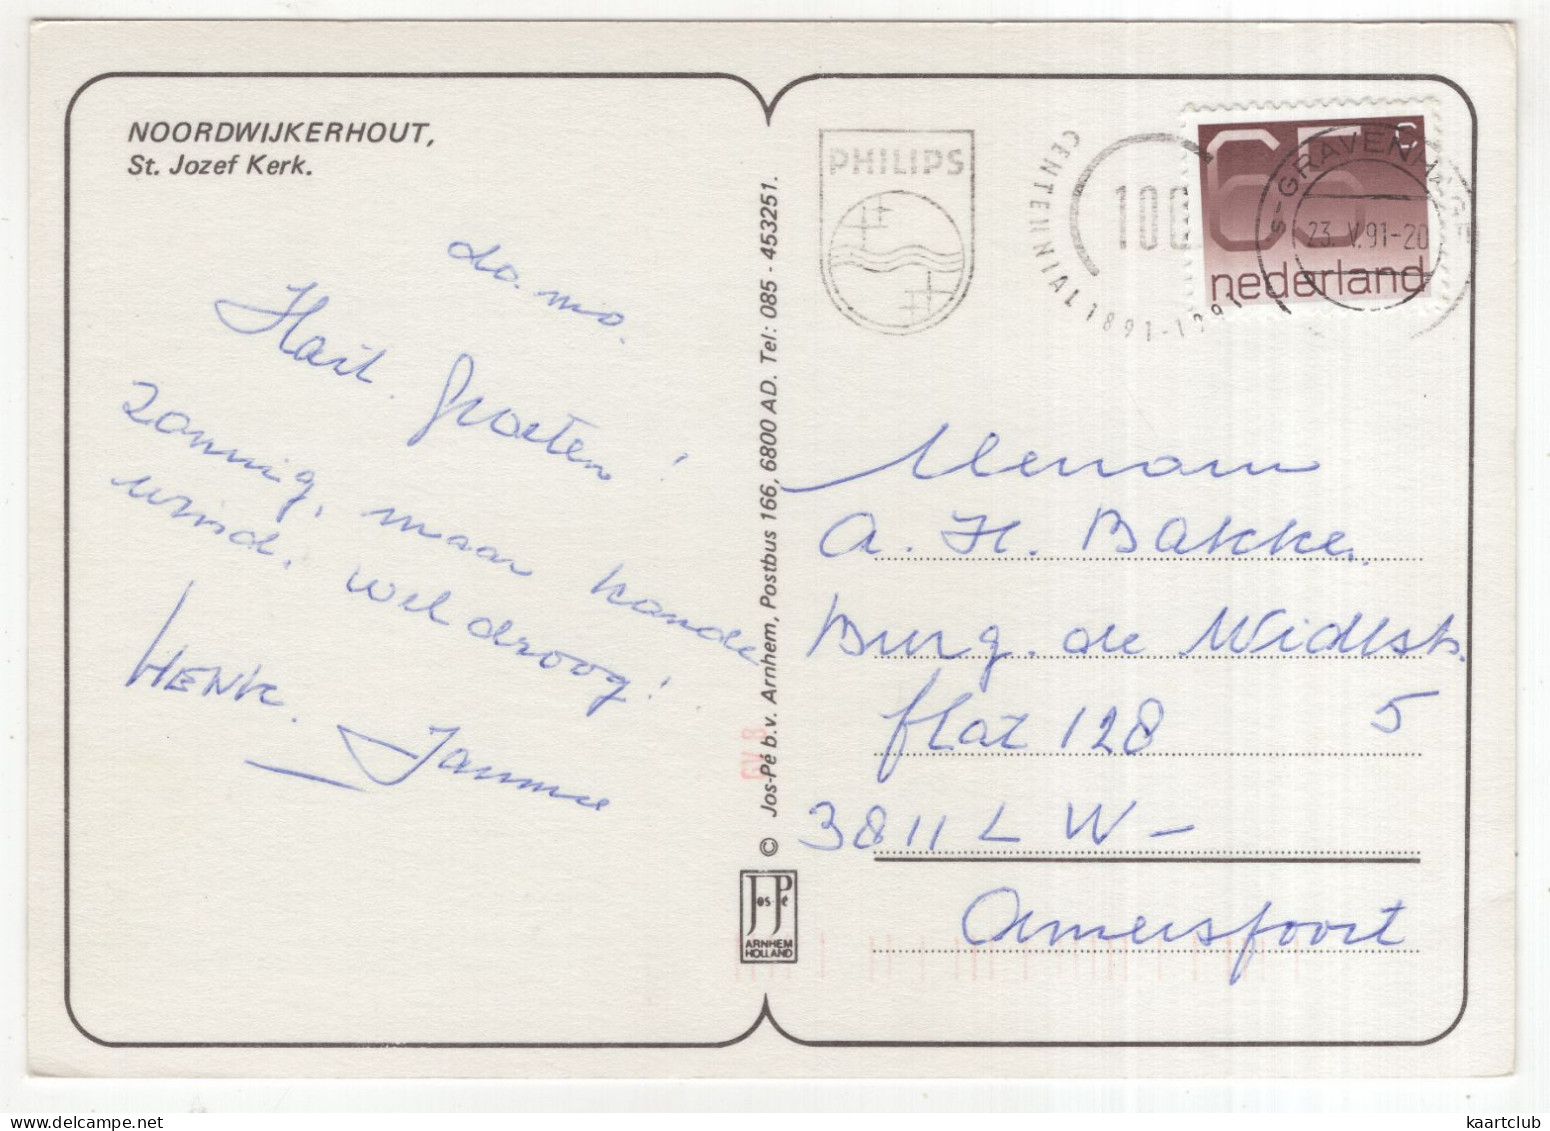 NOORDWIJKERHOUT,
St. Jozef Kerk.
do. mo.
Hart. Groeten!
zonnig, maar koude
wind. wel droog!
HENK.
Jannie
© Jos-Pé b.v. Arnhem, Postbus 166, 6800 AD. Tel: 085 - 453251.
GV 8
Jos-Pé
ARNHEM
HOLLAND
PHILIPS
CENTENNIAL 1891-1991
100
65 c
nederland
's-GRAVENHAGE
23.V.91-20
Mevrouw
A. H. Bakke.
Burg. de Widtstr.
flat 128 5
3811 LW-
Amersfoort
kaartclub